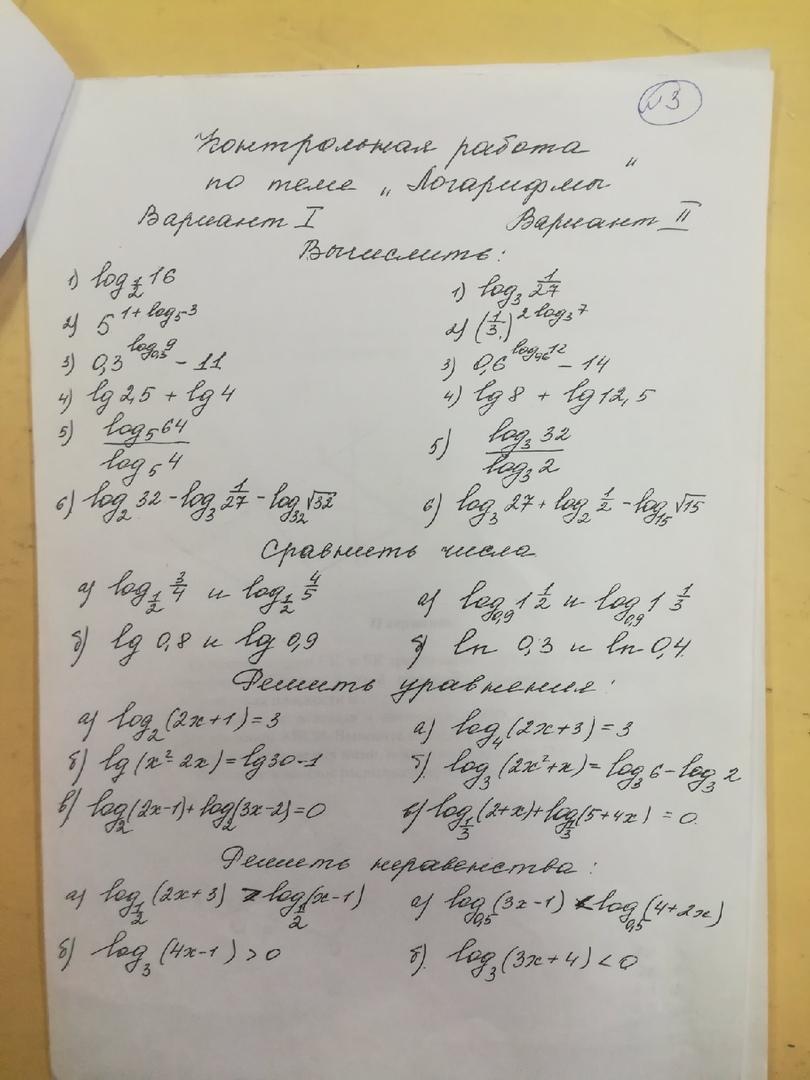 №3
Контрольная работа
по теме „Логарифмы"
Вариант I Вариант II
Вычислить:
1) log_{1/2} 16 1) log_3 1/27
2) 5^{1+log_5 3} 2) (1/3)^{2 log_3 7}
3) 0,3^{log_{0,3} 9} - 11 3) 0,6^{log_{0,6} 12} - 14
4) lg 2,5 + lg 4 4) lg 8 + lg 12,5
5) log_5 64 / log_5 4 5) log_3 32 / log_3 2
6) log_2 32 - log_3 1/27 - log_{32} √32 6) log_3 27 + log_2 1/2 - log_{15} √15
Сравнить числа
а) log_{1/2} 3/4 и log_{1/2} 4/5 а) log_{0,9} 1 1/2 и log_{0,9} 1 1/3
б) lg 0,8 и lg 0,9 б) ln 0,3 и ln 0,4
Решить уравнения:
а) log_2 (2x+1) = 3 а) log_4 (2x+3) = 3
б) lg (x²-2x) = lg 30 - 1 б). log_3 (2x²+x) = log_3 6 - log_3 2
в) log_2 (2x-1) + log_2 (3x-2) = 0 в) log_{1/3} (2+x) + log_{1/3} (5+4x) = 0.
Решить неравенства:
а) log_{1/2} (2x+3) > log_{1/2} (x-1) а) log_{0,5} (3x-1) < log_{0,5} (4+2x)
б) log_3 (4x-1) > 0 б). log_3 (3x+4) < 0